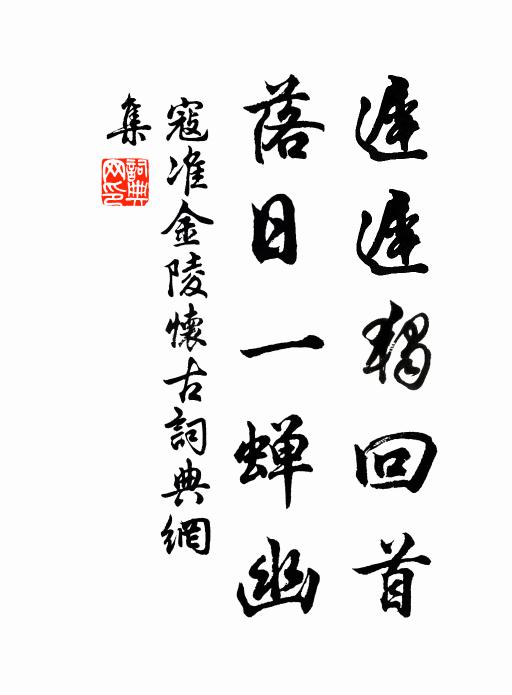 遲遲獨回首
落日一蝉幽
寇准金陵懷古詞典網
集
詞典
网印